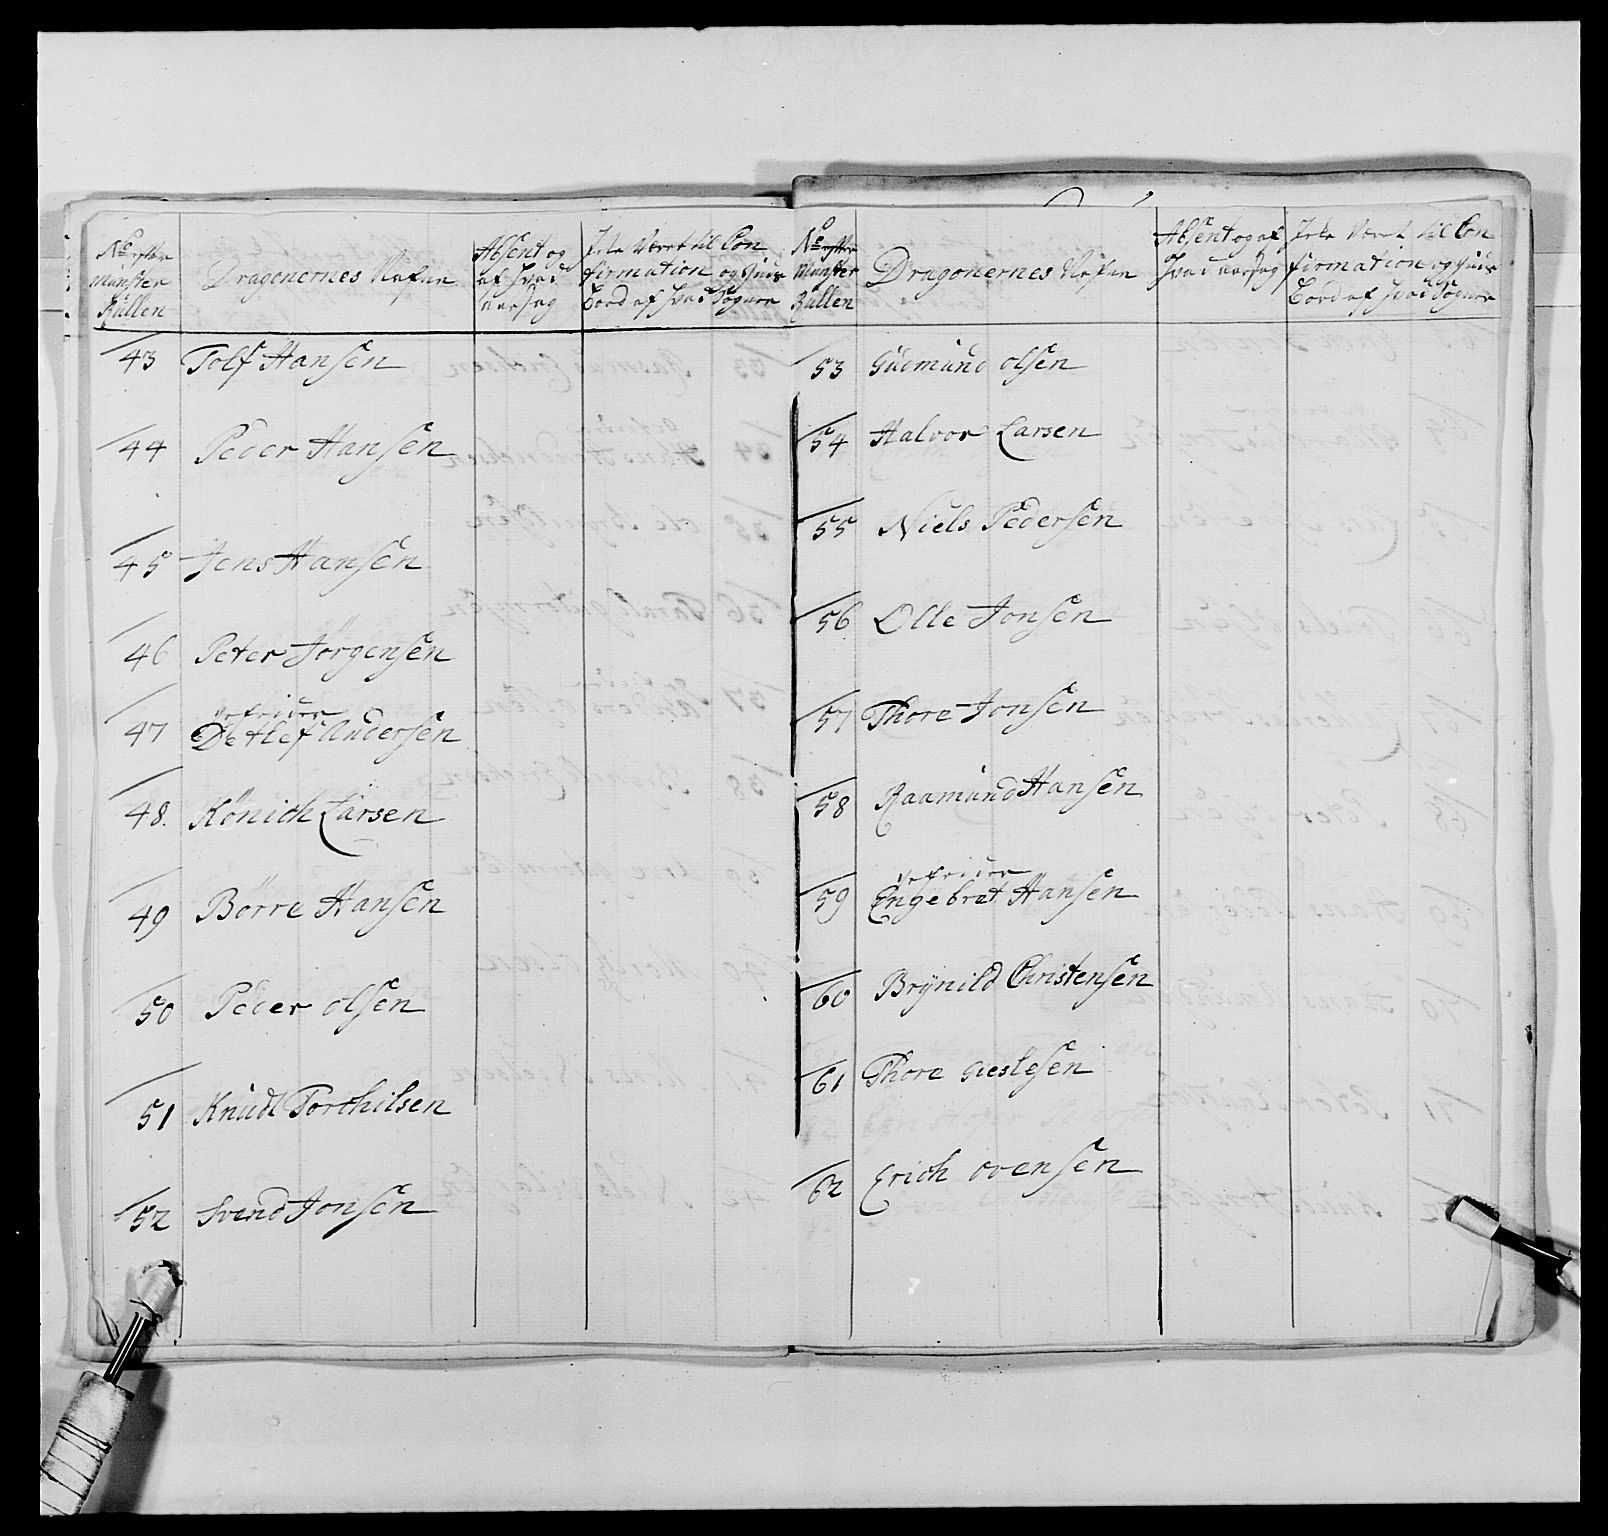 No efter
Münster
Rullen
Dragonernes Nafne
Absent og
af hvad
aarsag
Icke Været til Con
firmation og Guds
Bord af hvad Sogne
43 Tolf Hansen
44 Peder Hansen
45 Jens Hansen
46 Peter Jörgensen
47 Gefrider
Detlef Andersen
48. Könich Larsen
49 Börre Hansen
50 Peder olsen
51 Knud Torchilsen
52 Svend Jonsen
No efter
Munster
Rullen
Dragonernes Nafne
Absent og af
hvad aarsag
Icke Været til Con
firmation og Guds
Bord af hvad Sogne
53 Gudmund olsen
54 Halvor Larsen
55 Niels Pedersen
56 Olle Jonsen
57 Thore Jonsen
58 Raamund Hansen
59 Gefrider
Engebret Hansen
60 Brynild Christensen
61 Thore Gieslesen
62 Erich ovensen